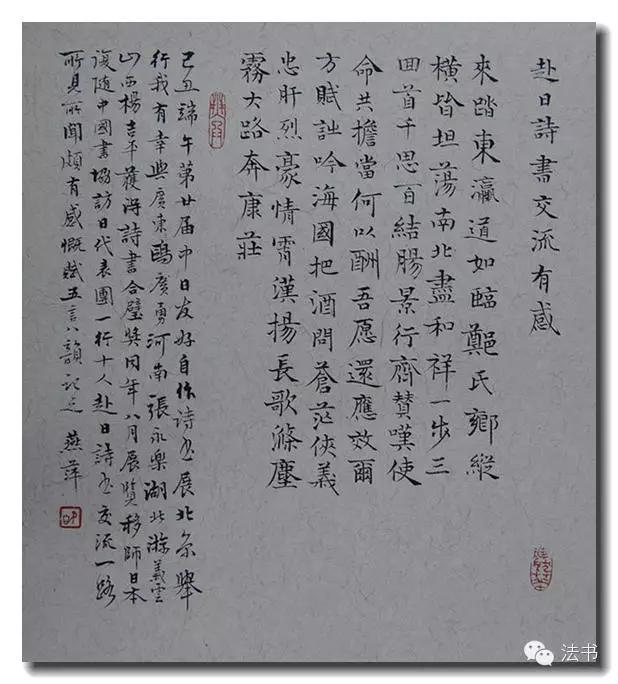 赴日詩書交流有感
來踏東瀛道如臨鄭氏鄉縱
橫皆坦蕩南北盡和祥一步三
回首千思百結腸景行齊贊嘆使
命共擔當何以酬吾愿還應效爾
方賦詩吟海國把酒問蒼茫俠義
忠肝烈豪情霄漢揚長歌滌塵
霧大路奔康莊
己丑端午第廿届中日友好自作詩書展北京舉
行我有幸與廣東鷗廣勇河南張永樂湖北游義雲
山西楊吉平獲得詩書合璧獎同年八月展覽移師日本
復随中國書協訪日代表團一行十人赴日詩書交流一路
所見所聞頗有感慨賦五言八韻記之 燕萍
法书